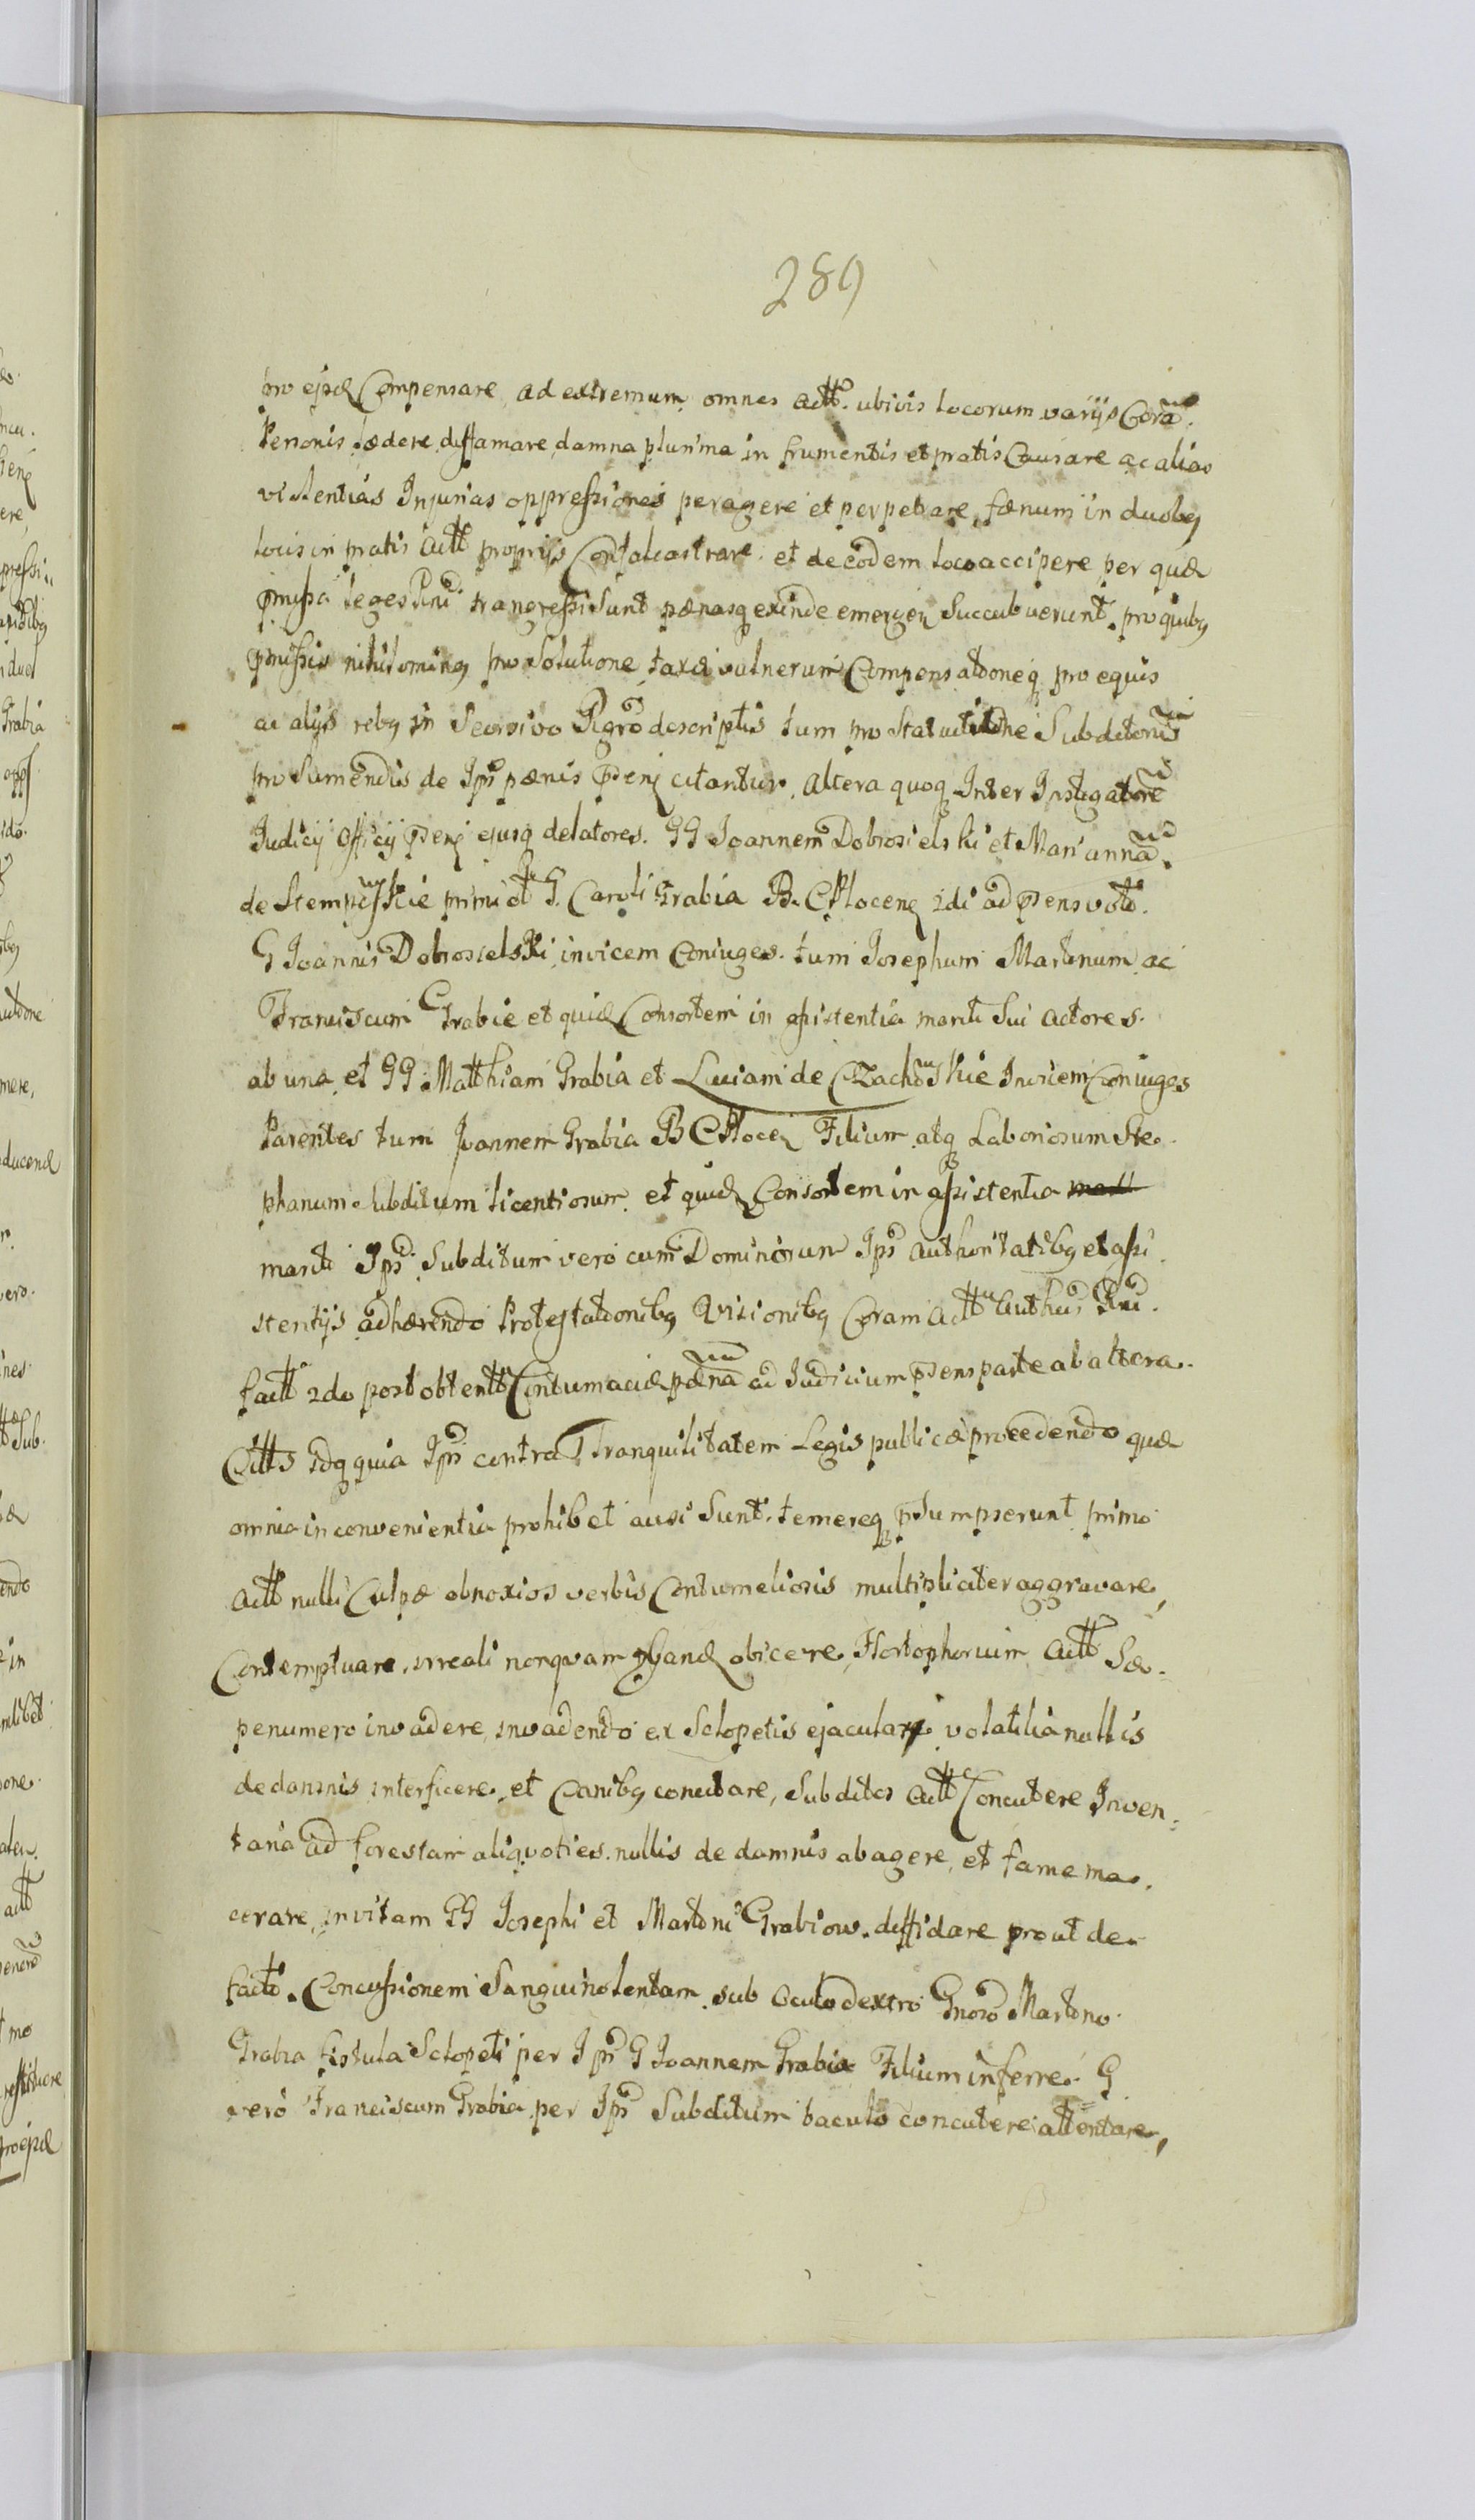 289
pro ejsd Compensare ad extremum omnes actt. ubivis locorum varijs Cora.
Personis lædere diffamare, damna plurima in frumentis et pratis Causare ac alias
violentias Injurias oppressiones peragere et perpetrare fænum in duobq
locis in pratis Actt proprijs Confalcastrare et de eodem loco accipere per quæ
pmissa leges Rni trangressi Sunt pænasq exinde emergen Succubuerunt. pro quibq
pmissis nihilominq pro Solutione taxæ vulnerum Compensatoneq pro equis
ac alijs rebq in Seorsivo Rgro descriptis tum pro Statuitione Subditorum
pro Sumendis de Ips pænis psenq citantur. Altera quoq Inter Instigatore
Judicij Officij psenq ejusq delatores. GG Joannem Dobrosielski et Mariannã
de Stempowskie primi ol G. Caroli Grabia B. C Plocenq 2di ad psens voto.
G Joannis Dobrosielski invicem Coniuges. tum Josephum Martinum ac
Franciscum Grabie et quid Consortem in assistentia mariti Sui Actores.
ab una et GG Matthiam Grabia et Luciam de Czachowskie Invicem Coniuges
Parentes tum Joannem Grabia B C Plocen Filium atq Laboriosum Ste-
phanum Subditum licentiosum et quid Consortem in assistentia
mariti Ips Subditum vero cum Dominorum Ips Authoritatibq et assi
stentijs adhærendo Protestatonibq Visionibq Coram Acttu Authen Rni.
factt 2do post obtentt Contumaciæ pænã ad Judicium psens parte ab altera.
Citts Idq quia Ipsi contra Tranquilitatem Legis publicæ procedendo quæ
omnia inconvenientia prohibet ausi Sunt. temereq psumpserunt primo
Actt nulli Culpæ obnoxios verbis Contumeliosis multipliciter aggravare,
Contemptuare, irreali nonquam obicere, Hortophorum Actt Sæ-
penumero invadere, invadendo ex Sclopetis ejaculari, volatilia nullis
de damnis interficere, et Canibq concitare, Subditos Actt Concutere Inven-
taria ad forestam aliquoties nullis de damnis abagere, et fame ma-
cerare, invitam GG Josephi et Martini Grabiow. diffidare prout de
facto. Concussionem Sanguinolentam sub oculo dextro Gnoso Martino
Grabia fistula Sclopeti per Ips G Joannem Grabia Filium inferre. G
vero Franciscum Grabia per Ips Subditum baculo concutere attentare,